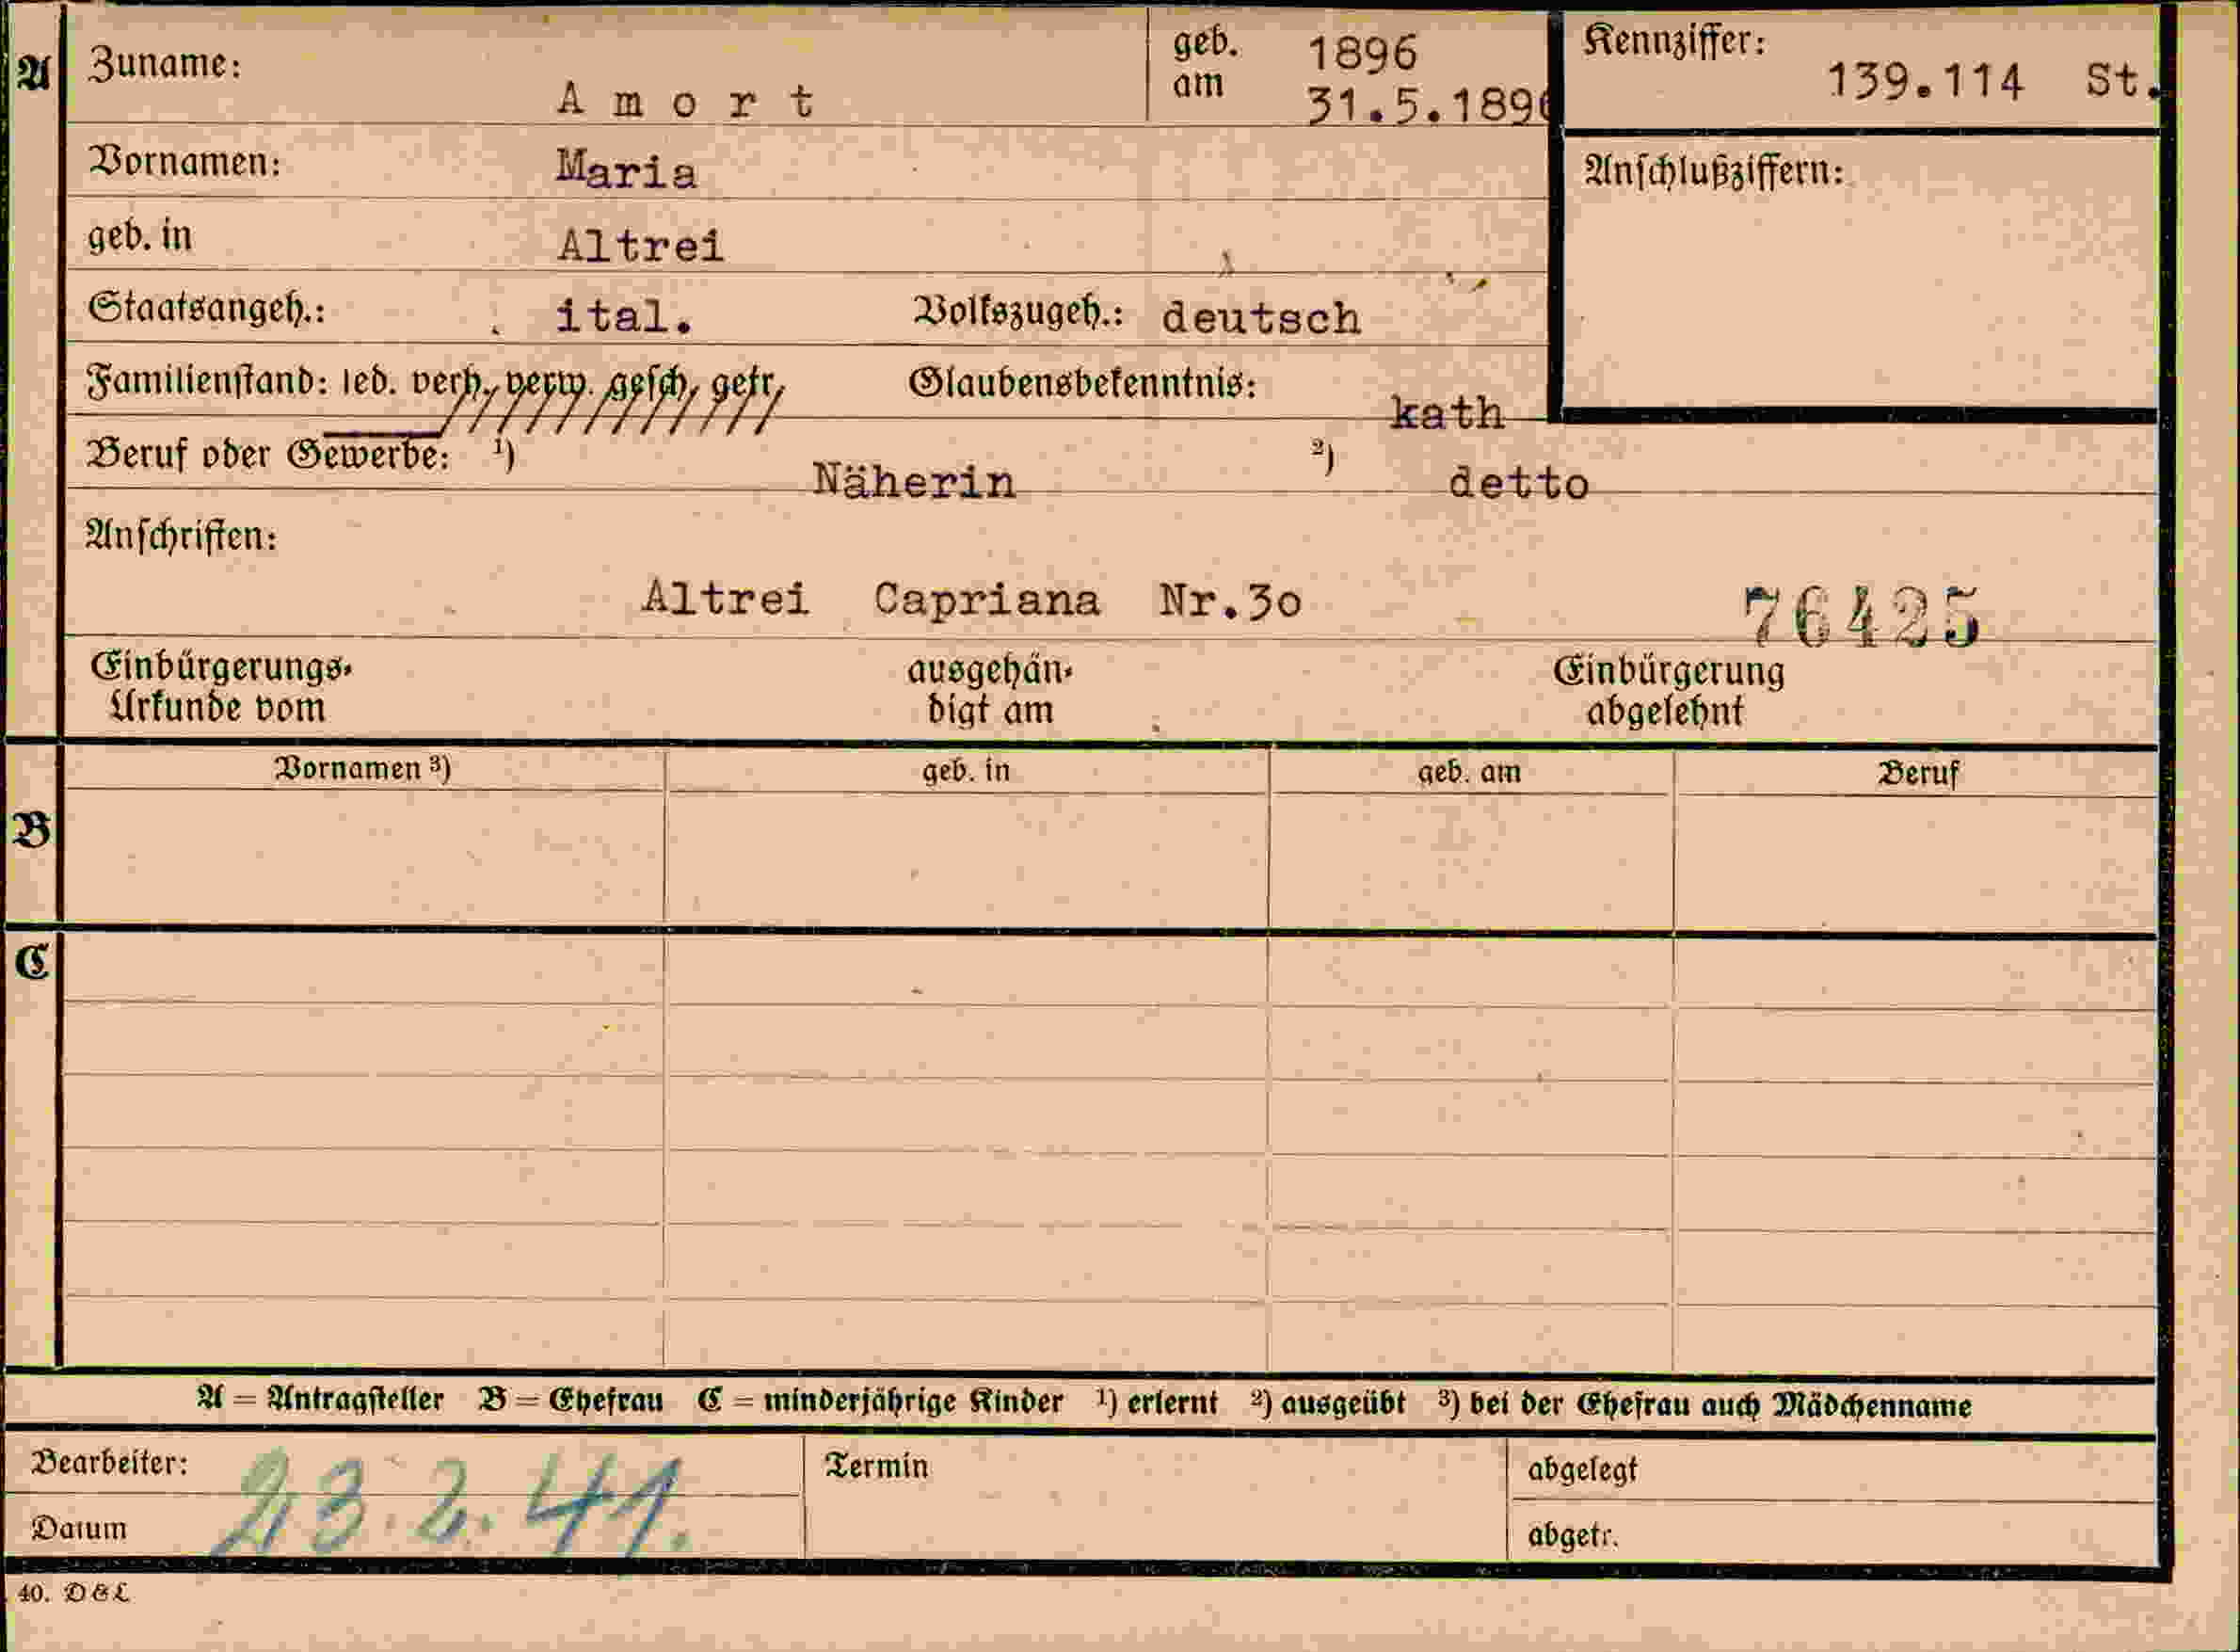 A Zuname: A m o r t geb. am 1896 31.5.1896 Kennziffer: 139.114 St.
Vornamen: Maria Anschlußziffern:
geb. in Altrei
Staatsangeh.: ital. Volkszugeh.: deutsch
Familienstand: led. verh. verw. gesch. getr. Glaubensbekenntnis: kath
Beruf oder Gewerbe: 1) Näherin 2) detto
Anschriften:
Altrei Capriana Nr.30 76425
Einbürgerungs- ausgehän- Einbürgerung
Urkunde vom digt am abgelehnt
Vornamen 3) geb. in geb. am Beruf
B
C
A = Antragsteller B = Ehefrau C = minderjährige Kinder 1) erlernt 2) ausgeübt 3) bei der Ehefrau auch Mädchenname
Bearbeiter: Termin abgelegt
Datum 23.2.41. abgetr.
40. D&L